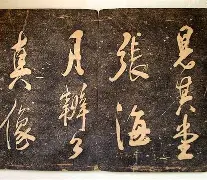 見其堂
張海
月辦了
真像